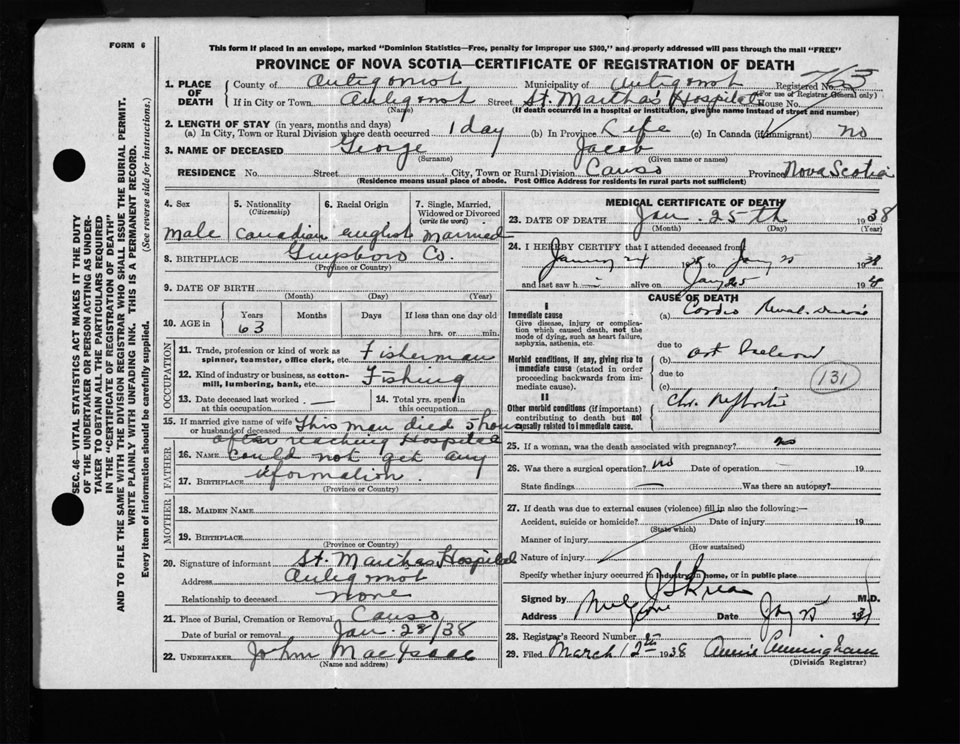 FORM 6
This form if placed in an envelope, marked "Dominion Statistics—Free, penalty for improper use $300," and properly addressed will pass through the mail "FREE"
PROVINCE OF NOVA SCOTIA—CERTIFICATE OF REGISTRATION OF DEATH
1. PLACE OF DEATH
County of Antigonish Municipality of Antigonish Registered No. 763
(For use of Registrar General only)
If in City or Town Antigonish Street St. Marthas Hospital House No.
(Name) (If death occurred in a hospital or institution, give the name instead of street and number)
2. LENGTH OF STAY (in years, months and days)
(a) In City, Town or Rural Division where death occurred 1 day (b) In Province Life (c) In Canada (if immigrant) no
3. NAME OF DECEASED George Jacob
(Surname) (Given name or names)
RESIDENCE No. Street City, Town or Rural Division Canso Province Nova Scotia
(Residence means usual place of abode. Post Office Address for residents in rural parts not sufficient)
4. Sex 5. Nationality (Citizenship) 6. Racial Origin 7. Single, Married, Widowed or Divorced (write the word)
Male Canadian English Married
8. BIRTHPLACE Guysboro Co.
(Province or Country)
9. DATE OF BIRTH
(Month) (Day) (Year)
10. AGE in Years Months Days If less than one day old
63 hrs. or min.
OCCUPATION
11. Trade, profession or kind of work as spinner, teamster, office clerk, etc. Fisherman
12. Kind of industry or business, as cotton-mill, lumbering, bank, etc. Fishing
13. Date deceased last worked at this occupation — 14. Total yrs. spent in this occupation
15. If married give name of wife or husband of deceased This man died 5 hours
after reaching Hospital
FATHER
16. NAME Could not get any
17. BIRTHPLACE information.
(Province or Country)
MOTHER
18. MAIDEN NAME
19. BIRTHPLACE
(Province or Country)
20. Signature of informant St. Marthas Hospital
Address Antigonish
Relationship to deceased none
21. Place of Burial, Cremation or Removal Canso
Date of burial or removal Jan. 28/38
22. UNDERTAKER John MacIsaac
(Name and address)
MEDICAL CERTIFICATE OF DEATH
23. DATE OF DEATH Jan. 25th 1938
(Month) (Day) (Year)
24. I HEREBY CERTIFY that I attended deceased from
January 24 1938 to Jany 25 1938
and last saw h alive on Jany 25 193
CAUSE OF DEATH
I
Immediate cause
Give disease, injury or complication which caused death, not the mode of dying, such as heart failure, asphyxia, asthenia, etc.
(a) Cardio Renal
due to
Morbid conditions, if any, giving rise to immediate cause (stated in order proceeding backwards from immediate cause).
(b) art
due to
(c)
131
II
Other morbid conditions (if important) contributing to death but not causally related to immediate cause.
Chr. Nephritis
25. If a woman, was the death associated with pregnancy? no
26. Was there a surgical operation? no Date of operation — 19
State findings — Was there an autopsy?
27. If death was due to external causes (violence) fill in also the following:—
Accident, suicide or homicide? Date of injury 19
(State which)
Manner of injury
(How sustained)
Nature of injury
Specify whether injury occurred in industry, in home, or in public place
Signed by M.D.
Address Date Jany 25 193
28. Registrar's Record Number
29. Filed March 12th 1938 Annie Cunningham
(Division Registrar)
SEC. 46—VITAL STATISTICS ACT MAKES IT THE DUTY
OF THE UNDERTAKER OR PERSON ACTING AS UNDER-
TAKER TO OBTAIN ALL THE PARTICULARS REQUIRED
IN THE "CERTIFICATE OF REGISTRATION OF DEATH"
AND TO FILE THE SAME WITH THE DIVISION REGISTRAR WHO SHALL ISSUE THE BURIAL PERMIT.
WRITE PLAINLY WITH UNFADING INK. THIS IS A PERMANENT RECORD.
Every item of information should be carefully supplied. (See reverse side for instructions.)